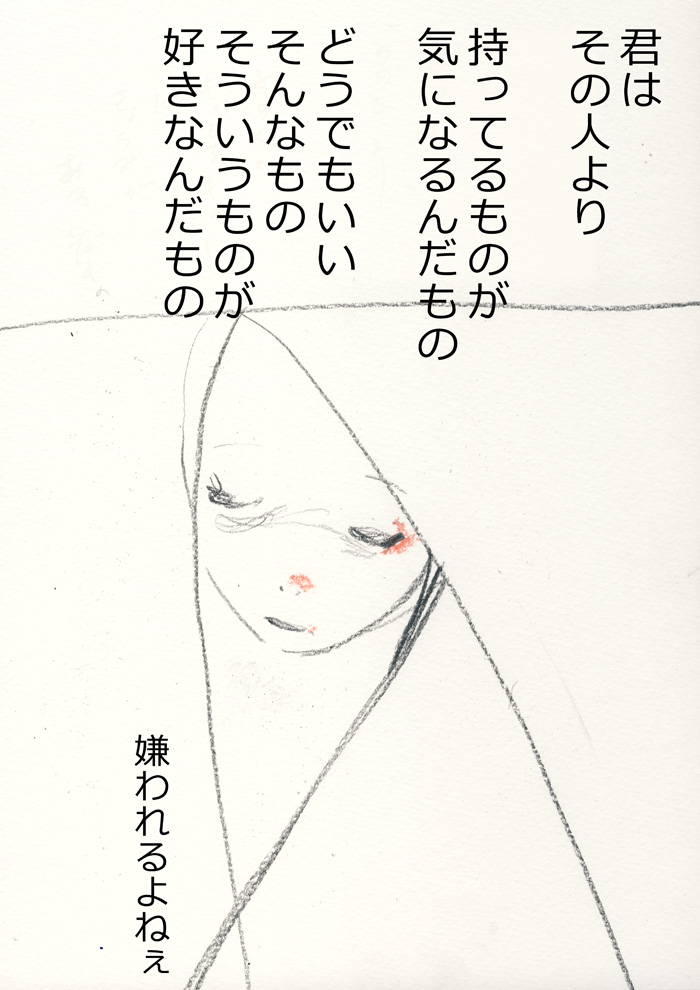 君は
その人より
持ってるものが
気になるんだもの
どうでもいい
そんなもの
そういうものが
好きなんだもの
嫌われるよねぇ